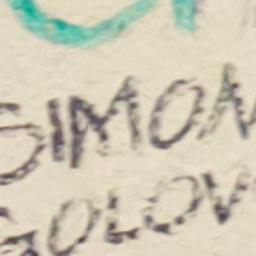 SIMON
GOLOV